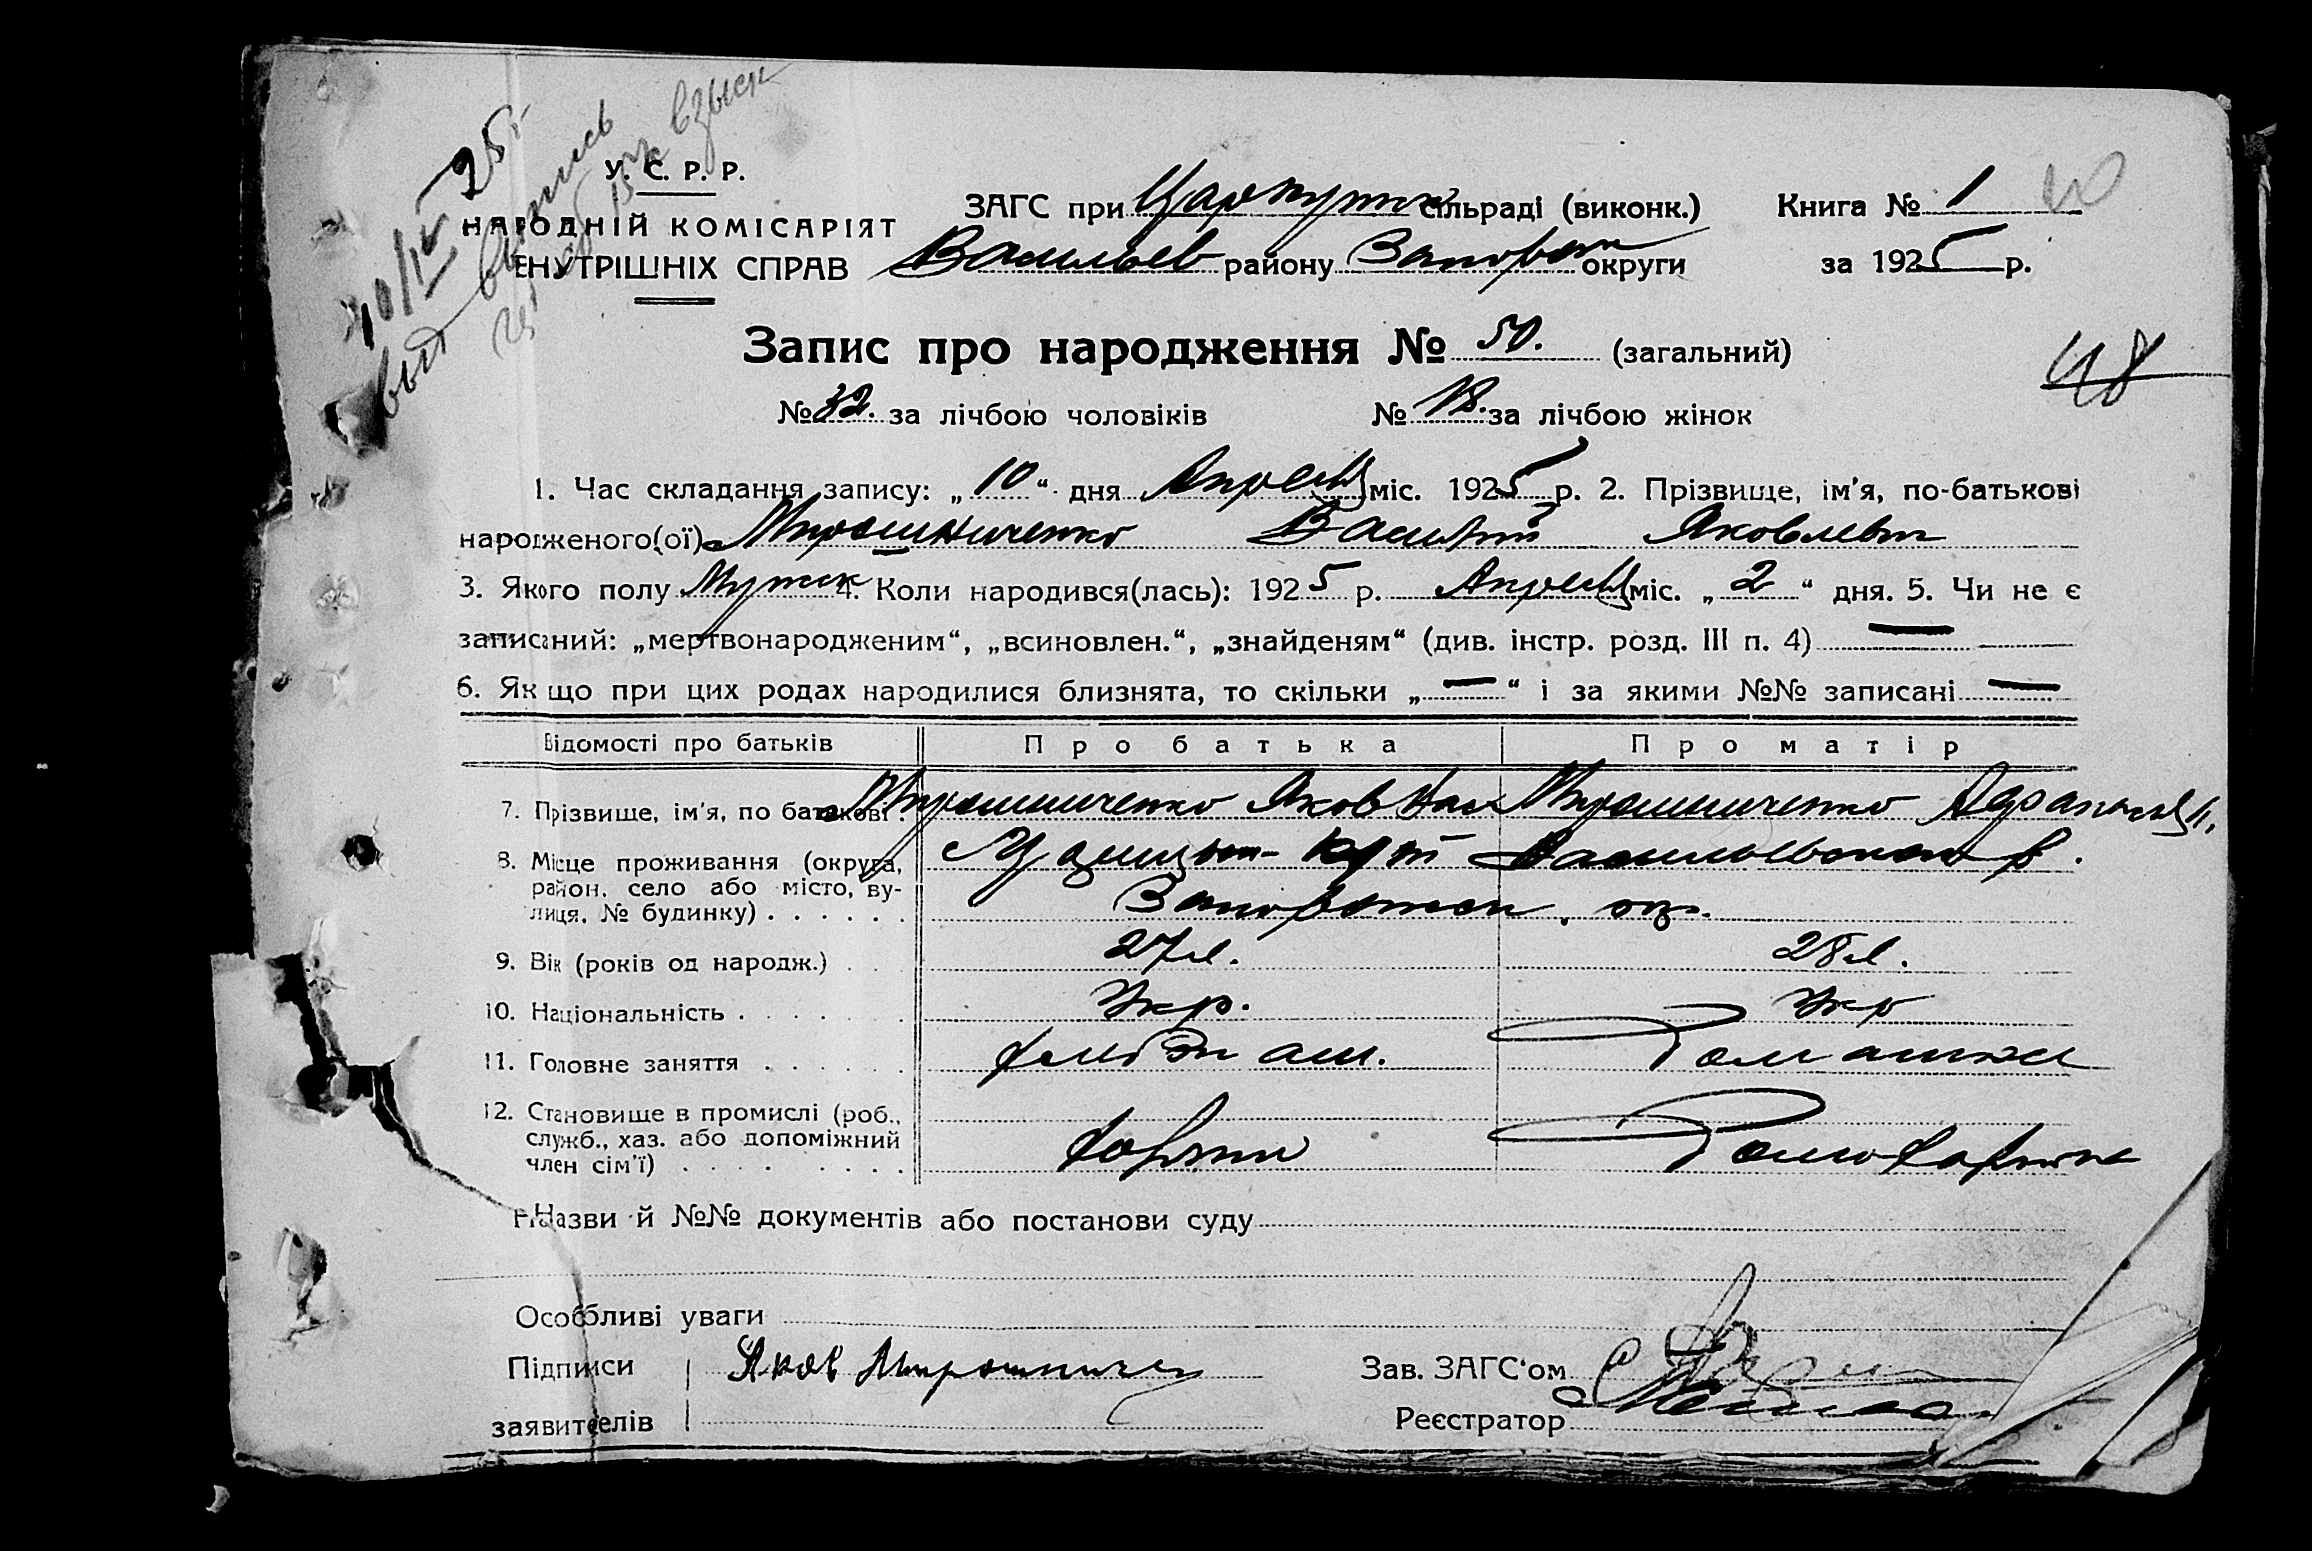 10/IV 25 г.
У. С. Р. Р.
НАРОДНІЙ КОМІСАРІЯТ
ВНУТРІШНІХ СПРАВ
ЗАГС при Царекутск сільраді (виконк.) Книга № 1
Васильев району Запорож округи за 1925 р.
Запис про народження № 50. (загальний)
48
№ 32. за лічбою чоловіків № 18. за лічбою жінок
1. Час складання запису: „10“ дня Апреля міс. 1925 р. 2. Прізвище, ім'я, по-батькові
народженого(ої) Мирошниченко Василий Яковлевич
3. Якого полу Мужск 4. Коли народився(лась): 1925 р. Апреля міс. „2“ дня. 5. Чи не є
записаний: „мертвонародженим“, „всиновлен.“, „знайденям“ (див. інстр. розд. III п. 4) —
6. Якщо при цих родах народилися близнята, то скільки „—“ і за якими №№ записані —
Відомості про батьків Про батька Про матір
7. Прізвище, ім'я, по батькові . Мирошниченко Яков Мирошниченко
8. Місце проживання (округа, район, село або місто, вулиця, № будинку) . . . . . . Кут Васильевского р.
Запорожск. окр.
9. Вік (років од народж.) . . . 27 л. 28 л.
10. Національність . . . . . . . Укр. Укр
11. Головне заняття . . . . . . хлебопаш. Домашнее
12. Становище в промислі (роб., служб., хаз. або допоміжний член сім'ї) . . . . . . . . Хозяин Домохозяйка
Назви й №№ документів або постанови суду
Особливі уваги
Підписи Яков Мирошниченко Зав. ЗАГС'ом
заявителів Реєстратор